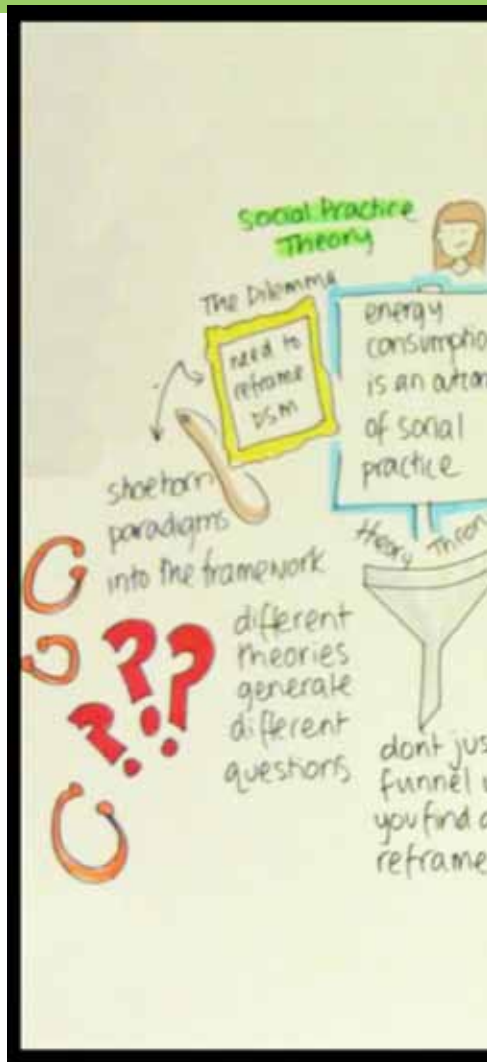 Social Practice
Theory
The Dilemma
need to
reframe
DSM
energy
consumptio
is an outcom
of social
practice
shoehorn
paradigms
into the framework
theory
different
theories
generate
different
questions
dont jus
funnel
you find
reframe